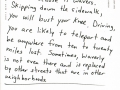 Skipping down the sidewalk,
you will bust your knee. Driving,
you are likely to teleport and
be anywhere from ten to twenty
miles lost. Sometimes, Waverly
is not even there and is replaced
by other streets that are in other
neighborhoods.